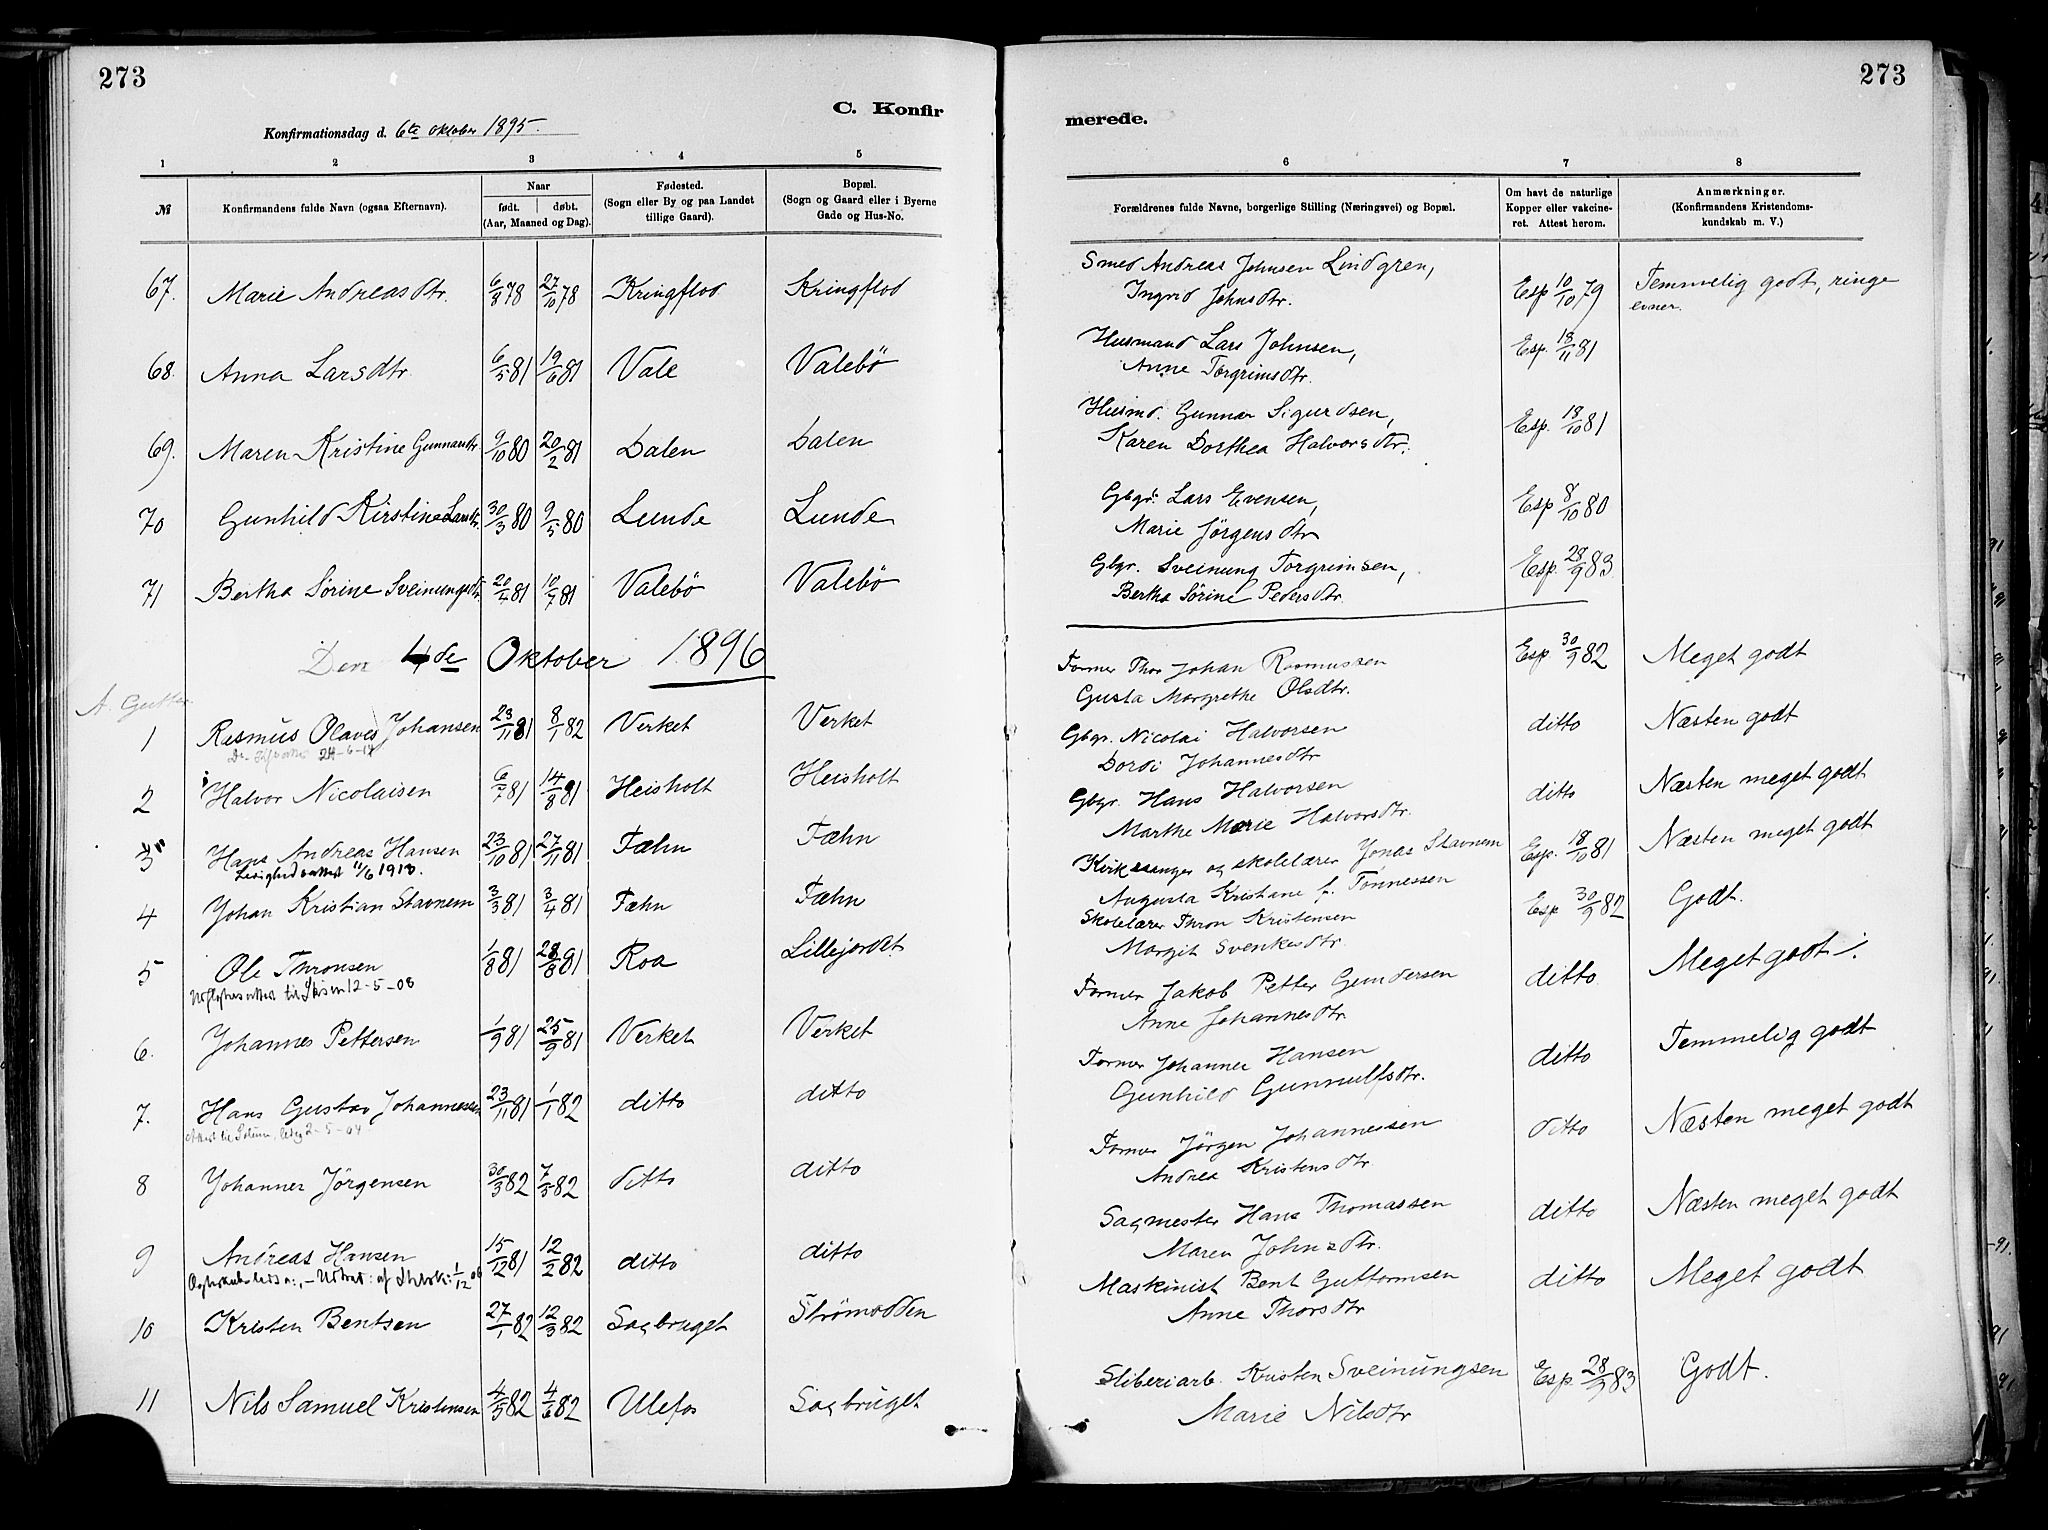 273
273
C. Konfir
merede.
Konfirmationsdag d. 6te Oktober 1895.
1 2 3 4 5 6 7 8
№
Konfirmandens fulde Navn (ogsaa Efternavn).
Naar
født. døbt.
(Aar, Maaned og Dag).
Fødested.
(Sogn eller By og paa Landet
tillige Gaard).
Bopæl.
(Sogn og Gaard eller i Byerne
Gade og Hus-No.
Forældrenes fulde Navne, borgerlige Stilling (Næringsvei) og Bopæl.
Om havt de naturlige
Kopper eller vakcine-
ret. Attest herom.
Anmærkninger.
(Konfirmandens Kristendoms-
kundskab m. V.)
67. Marie Andreasdtr. 6/8 78 27/10 78 Kringflod Kringflod Smed Andreas Johnsen Lindgren, Esp 10/10 79 Temmelig godt, ringe
Ingrid Johnsdtr. evner.
68. Anna Larsdtr. 6/5 81 19/6 81 Vale Valebö Husmand Lars Johnsen, Esp. 18/11 81
Anne Torgrimsdtr.
69. Maren Kristine Gunnarsdtr. 9/10 80 20/2 81 Dalen Dalen Husmd. Gunnar Sigurdsen, Esp. 18/10 81
Karen Dorthea Halvorsdtr.
70 Gunhild Kirstine Larsdtr. 30/3 80 9/5 80 Lunde Lunde Gbgr. Lars Evensen, Esp 8/10 80
Marie Jörgensdtr
71 Bertha Sörine Sveinungsdtr. 20/4 81 10/7 81 Valebö Valebö Gbgr. Sveinung Torgrimsen, Esp. 28/9 83
Bertha Sörine Pedersdtr.
Den 4de Oktober 1896
A. Gutter
1 Rasmus Olaves Johansen 23/11 81 8/1 82 Verket Verket Former Thor Johan Rasmussen Esp 30/9 82 Meget godt
24-6-14
Gusta Margrethe Olsdtr.
2 Halvor Nicolaisen 6/7 81 14/8 81 Heisholt Heisholt Gbgr. Nicolai Halvorsen ditto Næsten godt
Dordi Johannesdtr
3 Hans Andreas Hansen 23/10 81 27/11 81 Fæhn Fæhn Gbgr. Hans Halvorsen ditto Næsten meget godt
Ledighedsattest 11/6 1918.
Marthe Marie Halvorsdtr.
4 Johan Kristian Stavnem 3/3 81 3/4 81 Fæhn Fæhn Kirkesanger og skolelærer Jonas Stavnem Esp. 18/10 81 Næsten meget godt
Augusta Kristiane f. Tönnessen
5 Ole Thronsen 1/8 81 28/8 81 Roa Lillejordet Skolelærer Thron Kristensen Esp 30/9 82 Godt.
Udflytnesattest til Skien 12-5-08
Margit Svenkesdtr.
6. Johannes Pettersen 1/9 81 25/9 81 Verket Verket Former Jakob Petter Gundersen ditto Meget godt ./.
Anne Johannesdtr
7. Hans Gustav Johannessen 23/11 81 1/1 82 ditto ditto Former Johannes Hansen ditto Temmelig godt
Attest til Solum, ledig 2-5-04
Gunhild Gunnulfsdtr.
8 Johannes Jörgensen 30/3 82 7/5 82 ditto ditto Former Jörgen Johannessen ditto Næsten meget godt
Andrea Kristensdtr.
9 Andreas Hansen 15/12 81 12/2 82 ditto ditto Sagmester Hans Thomassen ditto Næsten meget godt
Maren Johnsdtr.
10 Kristen Bentsen 27/1 82 12/3 82 Sagbruget Strømodden Maskinist Bent Guttormsen ditto Meget godt
Anne Thorsdtr
11 Nils Samuel Kristensen 4/5 82 4/6 82 Ulefos Sagbruget Sliberiarb. Kristen Sveinungsen Esp. 28/9 83 Godt.
Marie Nilsdtr